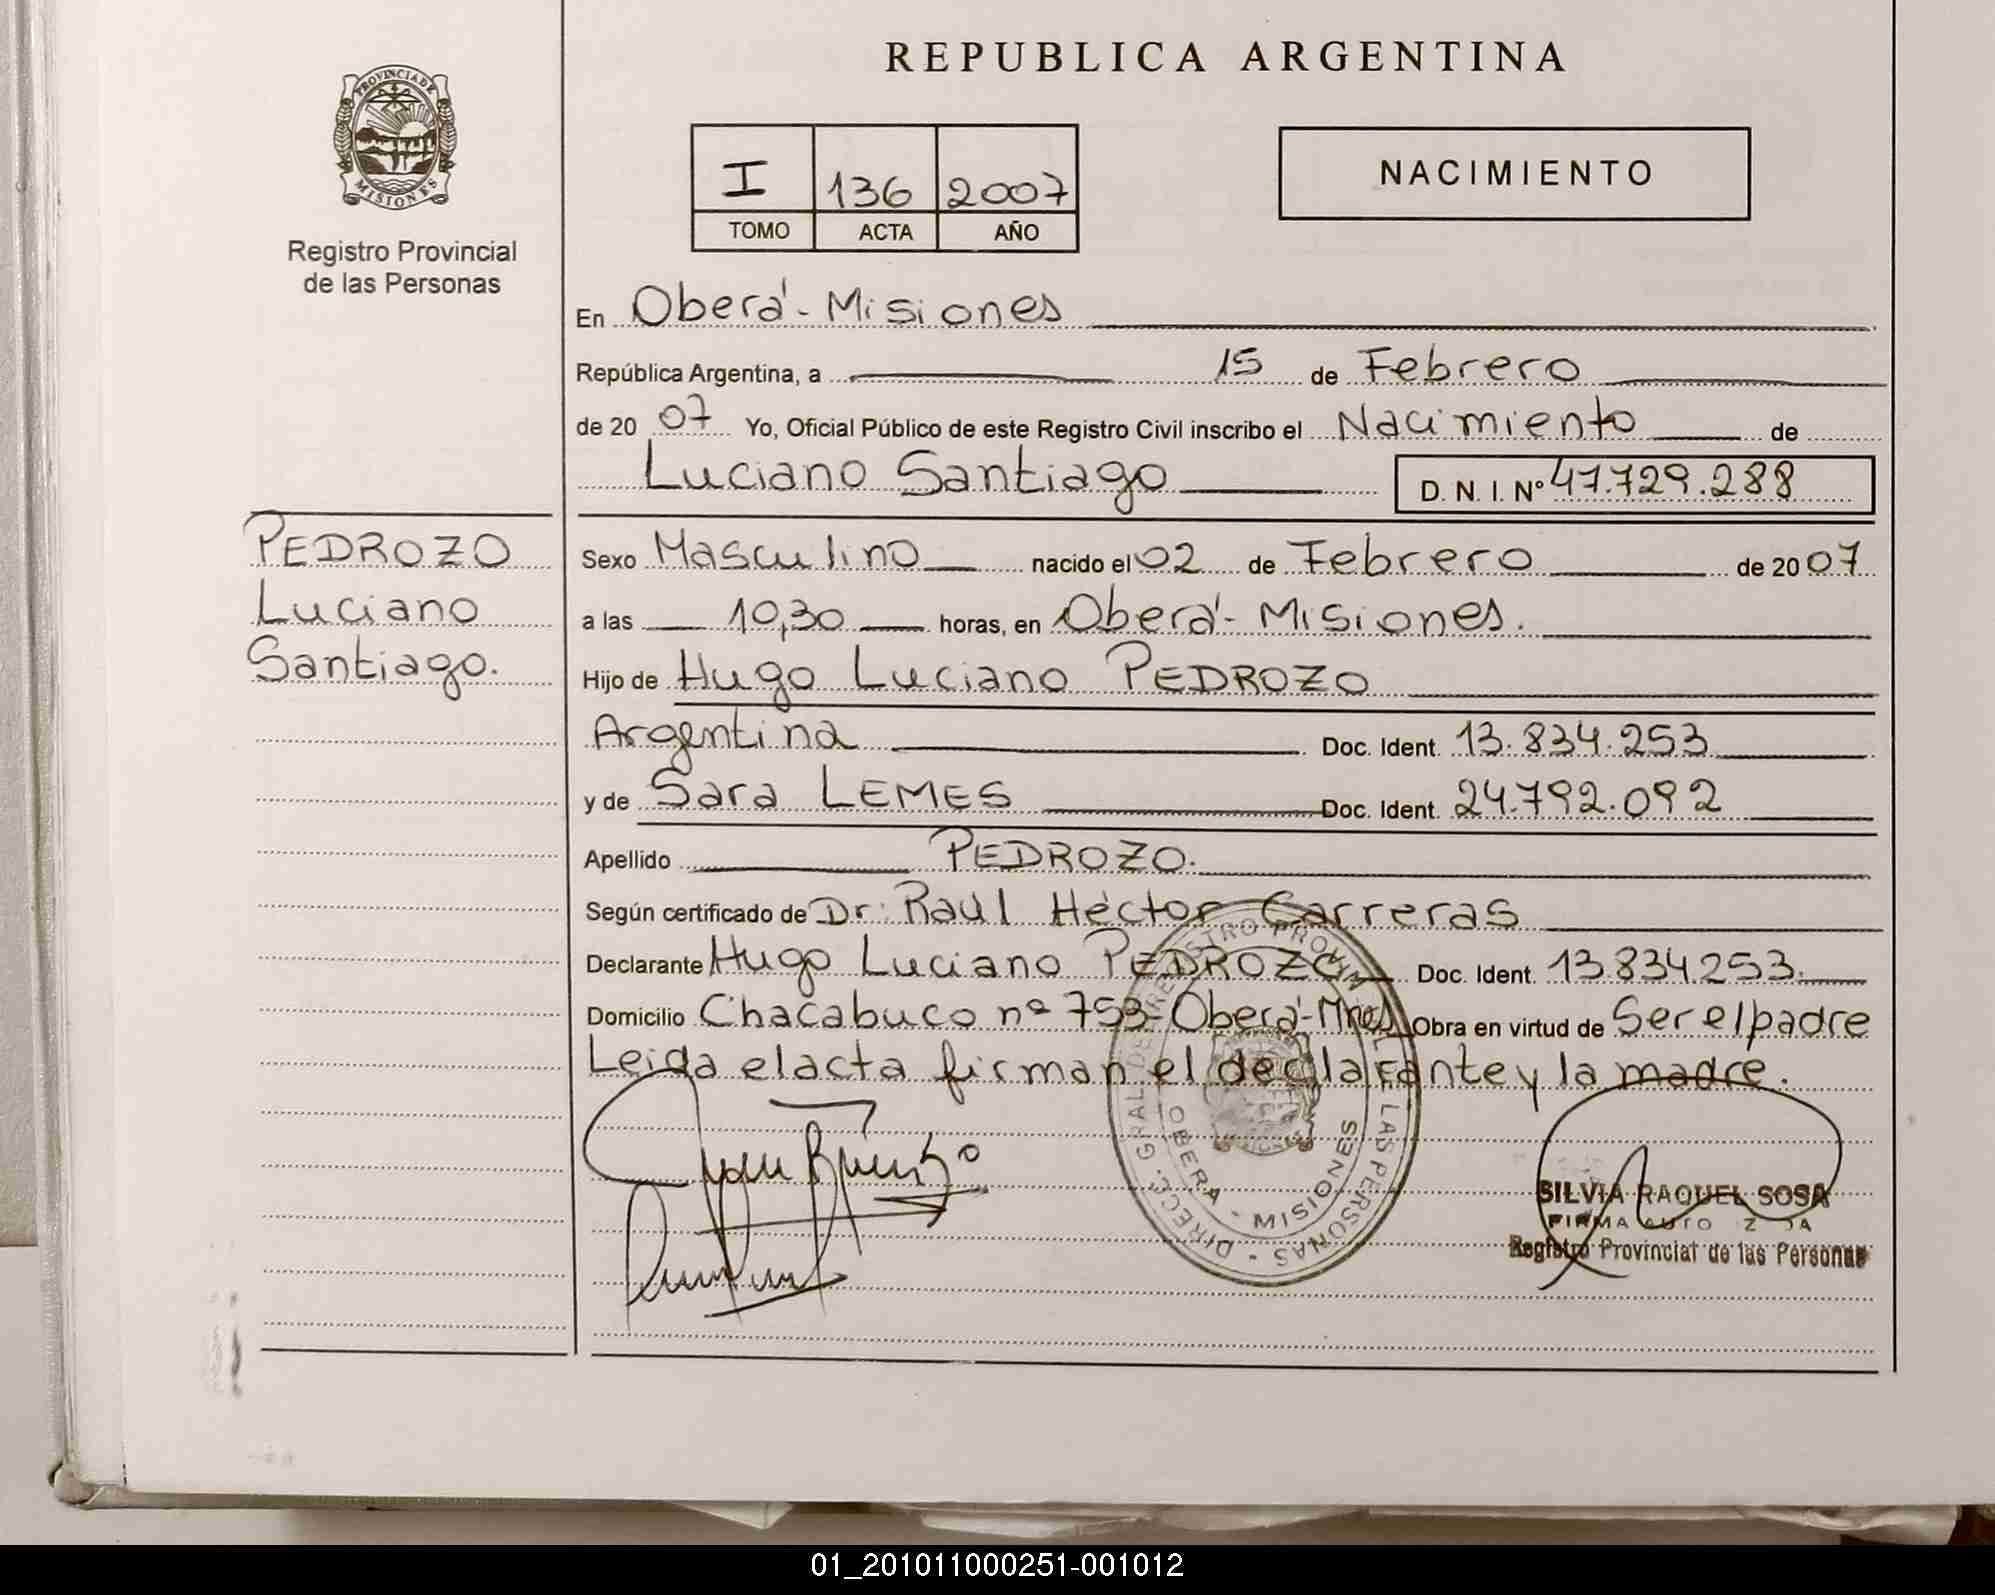 REPUBLICA ARGENTINA
PROVINCIA DE
MISIONES
Registro Provincial
de las Personas
I 136 2007
TOMO ACTA AÑO
NACIMIENTO
En Oberá - Misiones
República Argentina, a 15 de Febrero
de 2007 Yo, Oficial Público de este Registro Civil inscribo el Nacimiento de
Luciano Santiago D. N. I. Nº 47.729.288
PEDROZO
Luciano
Santiago.
Sexo Masculino nacido el 02 de Febrero de 2007
a las 10,30 horas, en Oberá - Misiones.
Hijo de Hugo Luciano PEDROZO
Argentina Doc. Ident. 13.834.253
y de Sara LEMES Doc. Ident. 24.792.092
Apellido PEDROZO.
Según certificado de Dr. Raúl Héctor Carreras
Declarante Hugo Luciano PEDROZO Doc. Ident. 13.834.253.
Domicilio Chacabuco nº 753 - Oberá - Mnes Obra en virtud de Ser el padre
Leida el acta firman el declarante y la madre.
DIREC. GRAL. DE REGISTRO PROVINCIAL DE LAS PERSONAS -
OBERA - MISIONES
SILVIA RAQUEL SOSA
FIRMA AUTO Z DA
Registro Provincial de las Personas
01_201011000251-001012